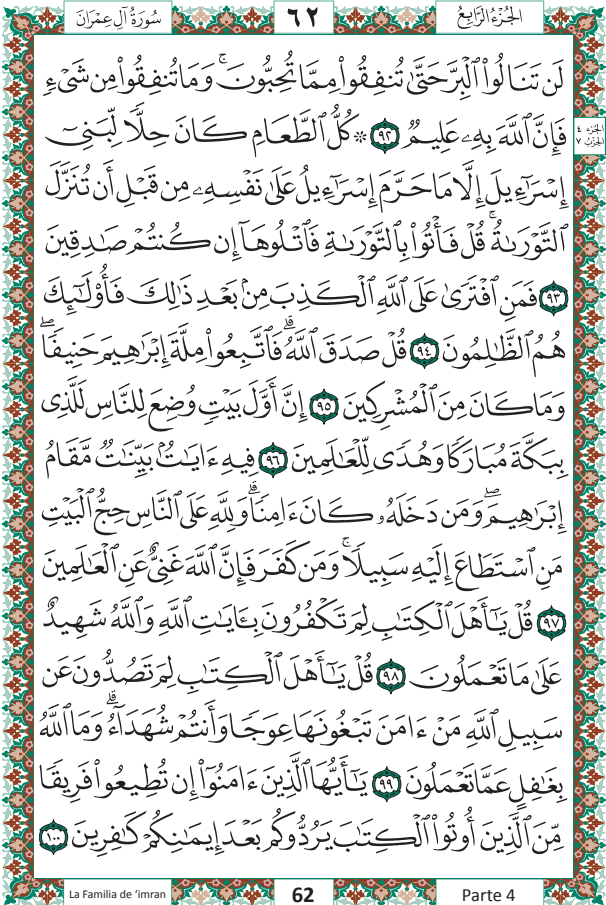 سُورَةُ آلِ عِمْرَانَ ٦٢ الجُزْءُ الرَّابِعُ
لَن تَنَالُوا۟ ٱلْبِرَّ حَتَّىٰ تُنفِقُوا۟ مِمَّا تُحِبُّونَ ۚ وَمَا تُنفِقُوا۟ مِن شَىْءٍ
فَإِنَّ ٱللَّهَ بِهِۦ عَلِيمٌ ٩٢ ۞ كُلُّ ٱلطَّعَامِ كَانَ حِلًّا لِّبَنِىٓ
الجزء ٤
الحزب ٧
إِسْرَٰٓءِيلَ إِلَّا مَا حَرَّمَ إِسْرَٰٓءِيلُ عَلَىٰ نَفْسِهِۦ مِن قَبْلِ أَن تُنَزَّلَ
ٱلتَّوْرَىٰةُ ۗ قُلْ فَأْتُوا۟ بِٱلتَّوْرَىٰةِ فَٱتْلُوهَآ إِن كُنتُمْ صَـٰدِقِينَ
٩٣ فَمَنِ ٱفْتَرَىٰ عَلَى ٱللَّهِ ٱلْكَذِبَ مِنۢ بَعْدِ ذَٰلِكَ فَأُو۟لَـٰٓئِكَ
هُمُ ٱلظَّـٰلِمُونَ ٩٤ قُلْ صَدَقَ ٱللَّهُ ۗ فَٱتَّبِعُوا۟ مِلَّةَ إِبْرَٰهِيمَ حَنِيفًا ۖ
وَمَا كَانَ مِنَ ٱلْمُشْرِكِينَ ٩٥ إِنَّ أَوَّلَ بَيْتٍ وُضِعَ لِلنَّاسِ لَلَّذِى
بِبَكَّةَ مُبَارَكًا وَهُدًى لِّلْعَـٰلَمِينَ ٩٦ فِيهِ ءَايَـٰتٌۢ بَيِّنَـٰتٌ مَّقَامُ
إِبْرَٰهِيمَ ۖ وَمَن دَخَلَهُۥ كَانَ ءَامِنًا ۗ وَلِلَّهِ عَلَى ٱلنَّاسِ حِجُّ ٱلْبَيْتِ
مَنِ ٱسْتَطَاعَ إِلَيْهِ سَبِيلًا ۚ وَمَن كَفَرَ فَإِنَّ ٱللَّهَ غَنِىٌّ عَنِ ٱلْعَـٰلَمِينَ
٩٧ قُلْ يَـٰٓأَهْلَ ٱلْكِتَـٰبِ لِمَ تَكْفُرُونَ بِـَٔايَـٰتِ ٱللَّهِ وَٱللَّهُ شَهِيدٌ
عَلَىٰ مَا تَعْمَلُونَ ٩٨ قُلْ يَـٰٓأَهْلَ ٱلْكِتَـٰبِ لِمَ تَصُدُّونَ عَن
سَبِيلِ ٱللَّهِ مَنْ ءَامَنَ تَبْغُونَهَا عِوَجًا وَأَنتُمْ شُهَدَآءُ ۗ وَمَا ٱللَّهُ
بِغَـٰفِلٍ عَمَّا تَعْمَلُونَ ٩٩ يَـٰٓأَيُّهَا ٱلَّذِينَ ءَامَنُوٓا۟ إِن تُطِيعُوا۟ فَرِيقًا
مِّنَ ٱلَّذِينَ أُوتُوا۟ ٱلْكِتَـٰبَ يَرُدُّوكُم بَعْدَ إِيمَـٰنِكُمْ كَـٰفِرِينَ ١٠٠
La Familia de ‘imran 62 Parte 4